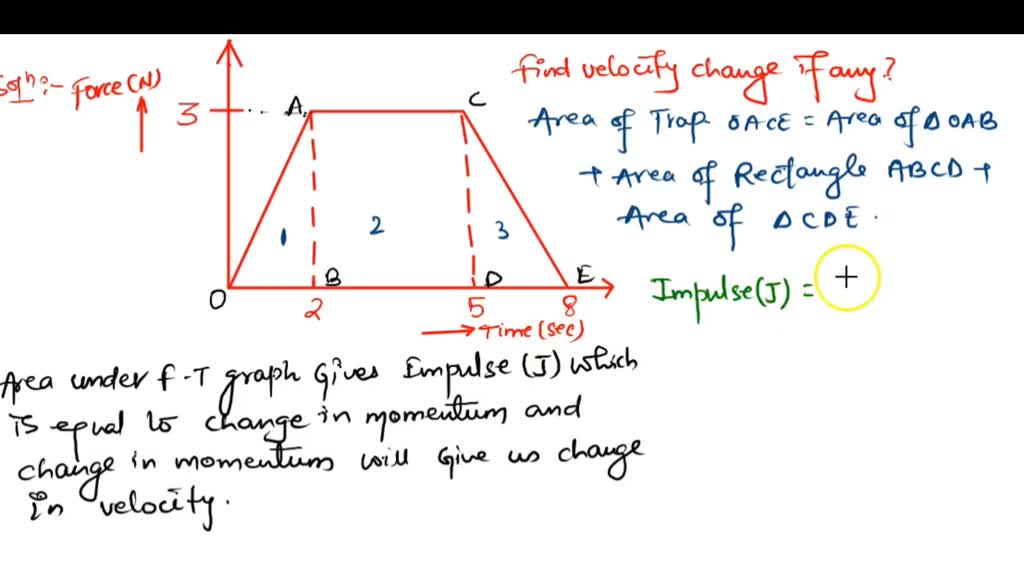 Solⁿ:- Force(N)
Find velocity change if any?
3 .. A C
Area of Trap OACE = Area of Δ OAB
+ Area of Rectangle ABCD +
Area of Δ CDE.
1 2 3
O B D E
2 5 8
Time (sec)
Impulse(J) =
Area under f-T graph Gives Impulse (J) which
is equal to change in momentum and
change in momentum will Give us change
in velocity.